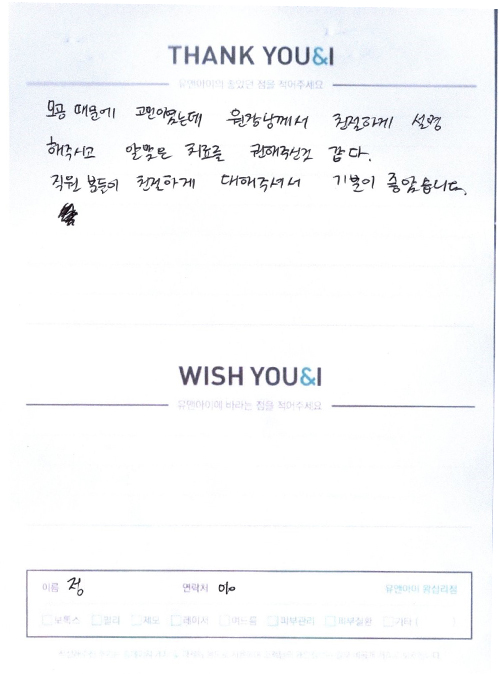 THANK YOU&I
유앤아이의 좋았던 점을 적어주세요
모공 때문에 고민이였는데 원장님께서 친절하게 설명
해주시고 알맞은 치료를 권해주신것 같다.
직원 분들이 친절하게 대해주셔서 기분이 좋았습니다.
WISH YOU&I
유앤아이에 바라는 점을 적어주세요
이름 정 연락처 010 유앤아이 왕십리점
보톡스 필러 제모 레이저 여드름 피부관리 피부질환 기타 ( )